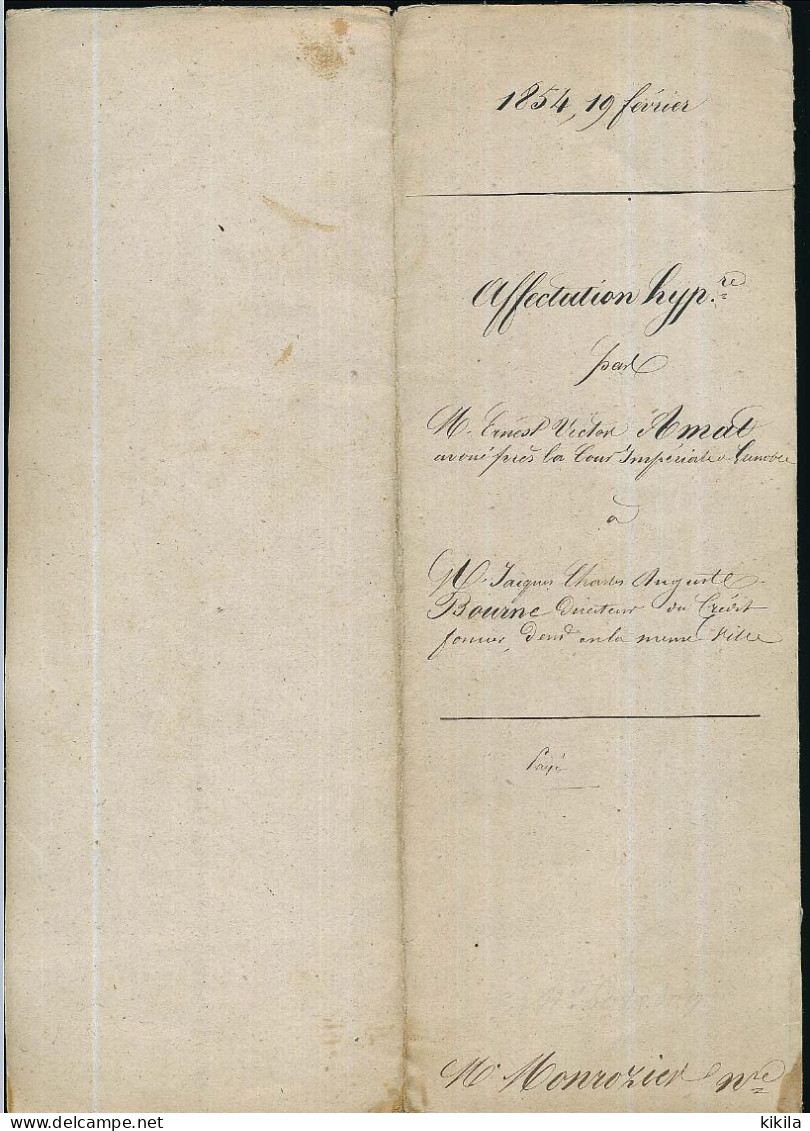 1854, 19 février
Affectation hyp.re
par
M. Ernest Victor Amat
avoué près la Cour Impériale Grenoble
à
M. Jacques Charles Auguste
Bourne Directeur du Crédit
foncier, demt en la même Ville
Payé
Me Monrozier Nre
kikila